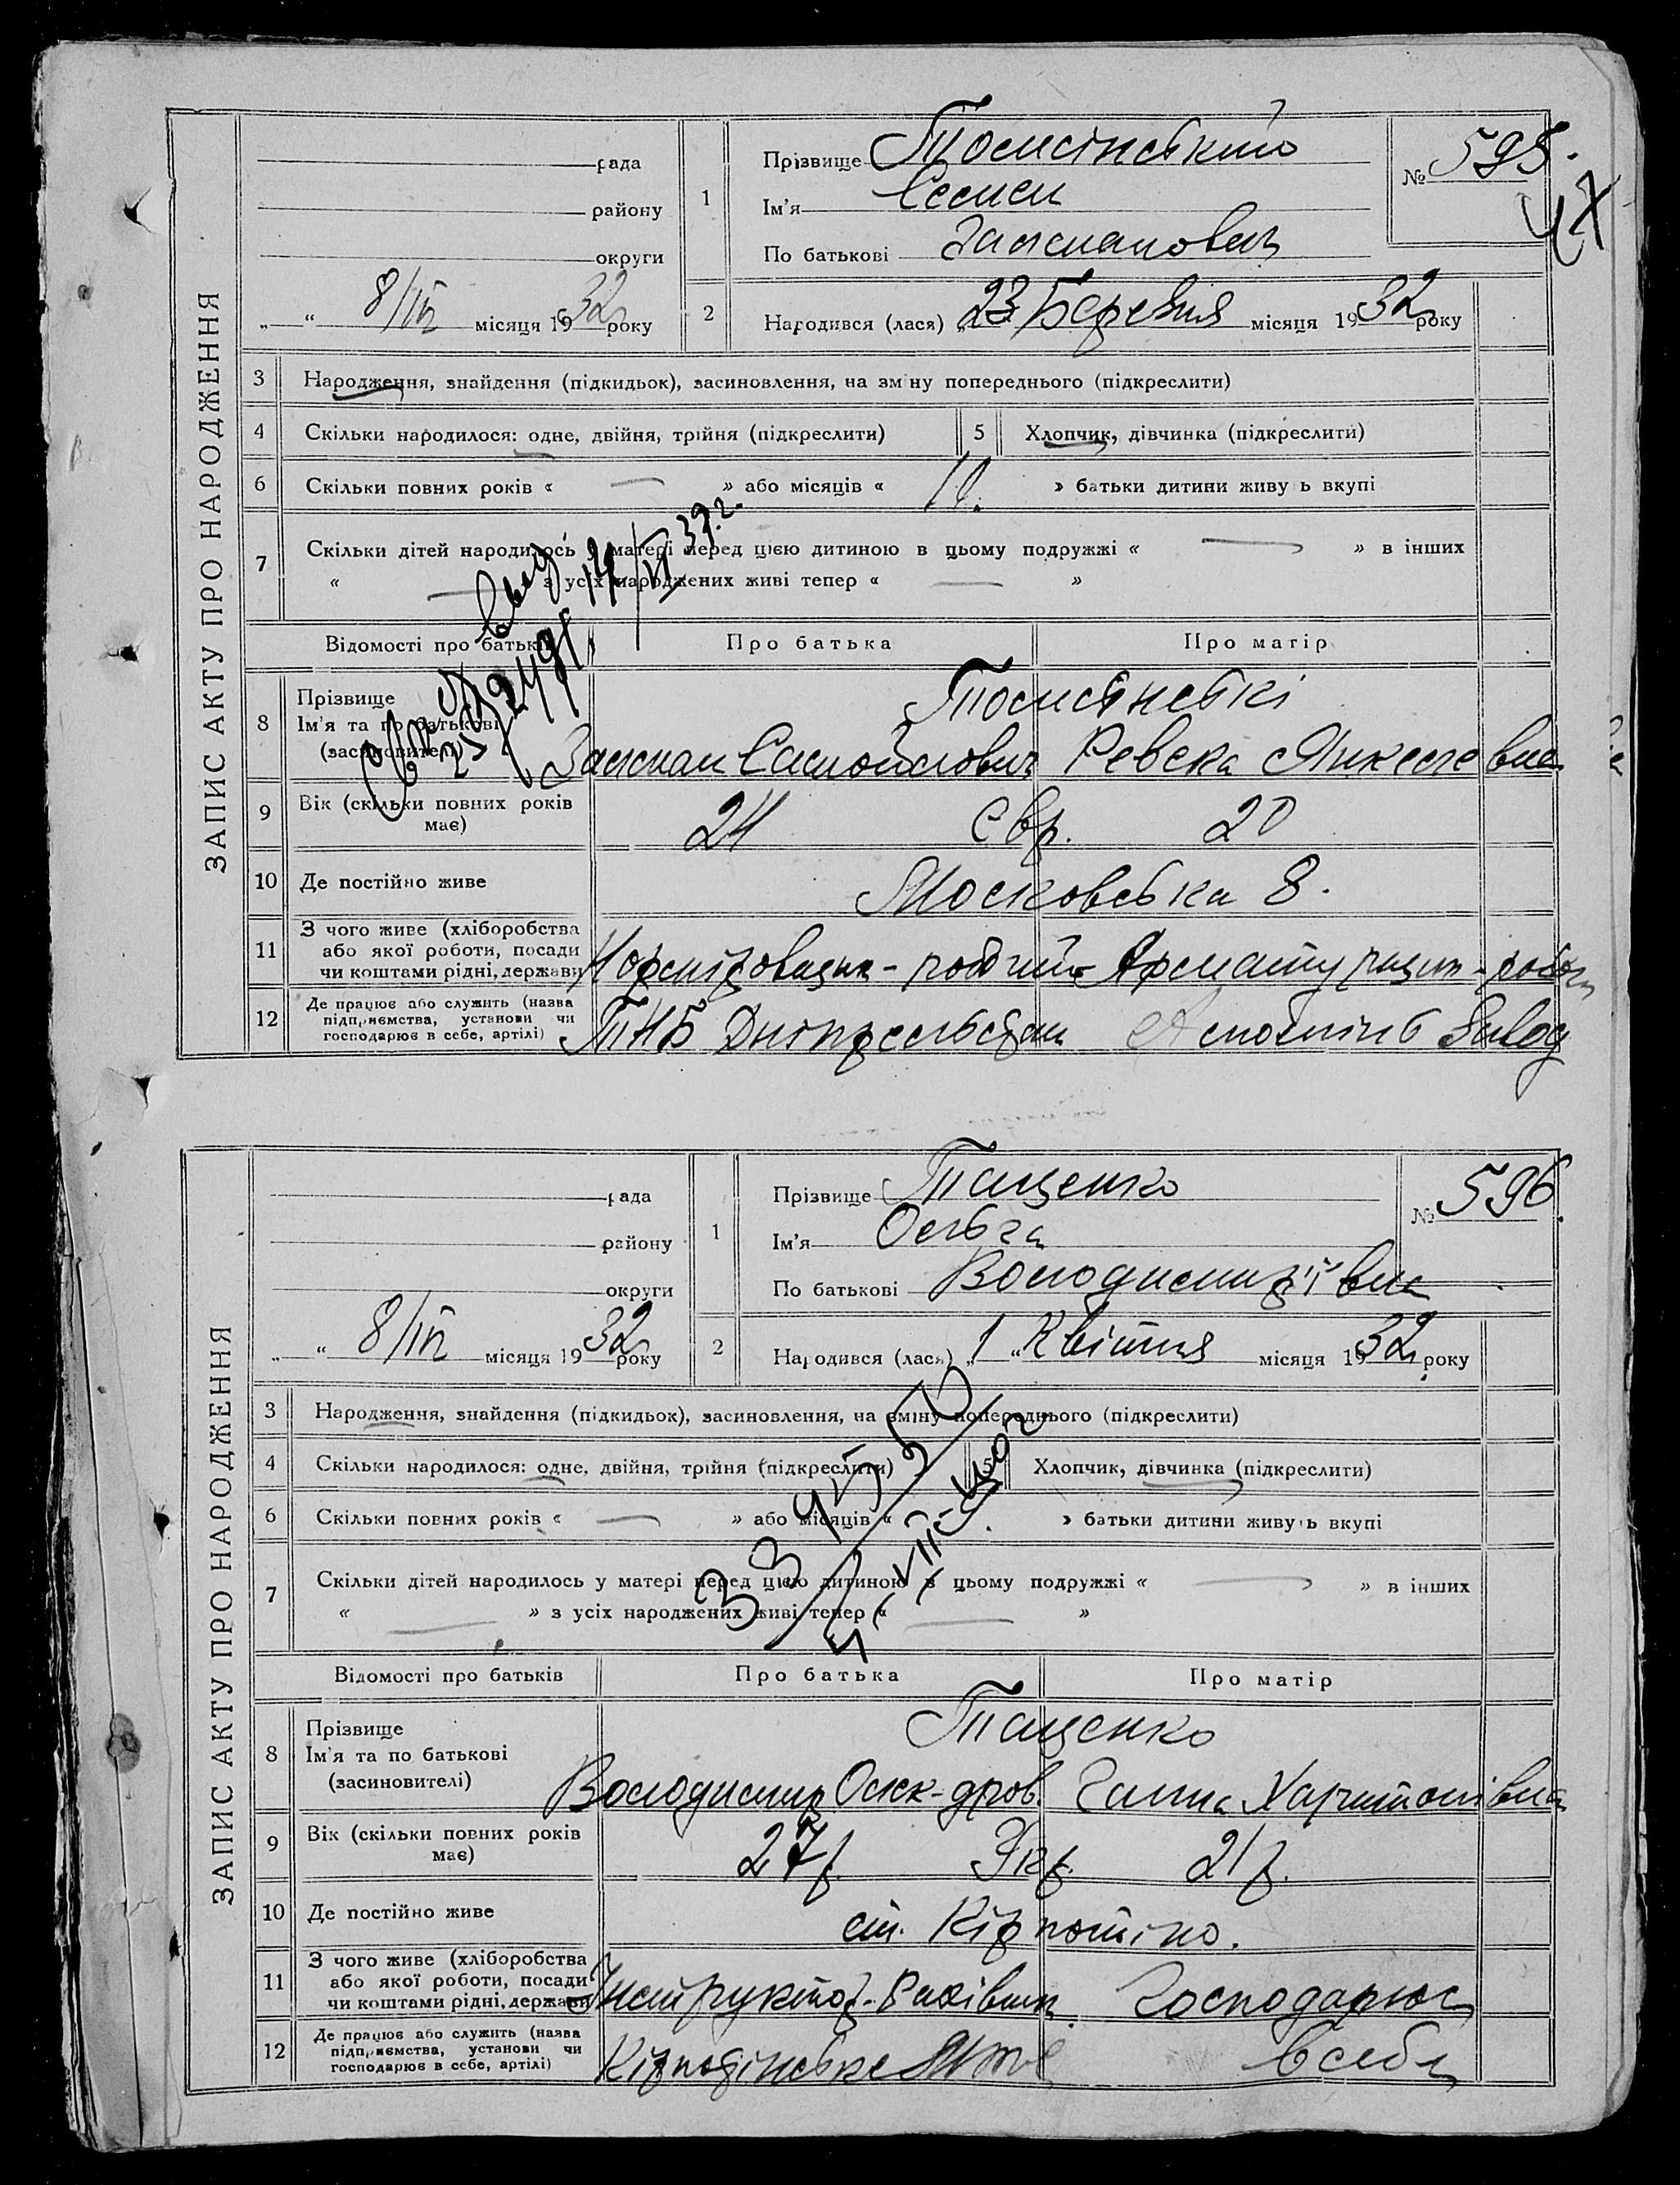 ЗАПИС АКТУ ПРО НАРОДЖЕННЯ
рада
району
округи
8/IV місяця 1932 року
1
Прізвище Томсінський
Ім'я Семен
По батькові Залманович
№ 595.
2
Народився (лася) 23 Березня місяця 1932 року
3 Народження, знайдення (підкидьок), засиновлення, на зміну попереднього (підкреслити)
4 Скільки народилося: одне, двійня, трійня (підкреслити)
5 Хлопчик, дівчинка (підкреслити)
6 Скільки повних років « — » або місяців « » батьки дитини живуть вкупі
7 Скільки дітей народилось у матері перед цією дитиною в цьому подружжі « — » в інших
« — » з усіх народжених живі тепер « — »
Відомості про батьків
Про батька
Про матір
8 Прізвище
Ім'я та по батькові
(засиновителі)
Томсінські
Залман Самойлович Ревека Янкелевна
9 Вік (скільки повних років має)
24 Євр. 20
10 Де постійно живе
Московська 8.
11 З чого живе (хліборобства
або якої роботи, посади
чи коштами рідні, держави
12 Де працює або служить (назва
підприємства, установи чи
господарює в себе, артілі)
ЗАПИС АКТУ ПРО НАРОДЖЕННЯ
рада
району
округи
8/IV місяця 1932 року
1
Прізвище Тащенко
Ім'я Ольга
По батькові Володимирівна
№ 596.
2
Народився (лася) 1 Квітня місяця 1932 року
3 Народження, знайдення (підкидьок), засиновлення, на зміну попереднього (підкреслити)
4 Скільки народилося: одне, двійня, трійня (підкреслити)
5 Хлопчик, дівчинка (підкреслити)
6 Скільки повних років « — » або місяців « » батьки дитини живуть вкупі
7 Скільки дітей народилось у матері перед цією дитиною в цьому подружжі « — » в інших
« — » з усіх народжених живі тепер « — »
Відомості про батьків
Про батька
Про матір
8 Прізвище
Ім'я та по батькові
(засиновителі)
Тащенко
Володимир Олек-дров. Ганна Харитонівна
9 Вік (скільки повних років має)
27 р. Укр. 21 р.
10 Де постійно живе
ст. Кірпотіно.
11 З чого живе (хліборобства
або якої роботи, посади
чи коштами рідні, держави
Інструктор-Рахівник Господарює
12 Де працює або служить (назва
підприємства, установи чи
господарює в себе, артілі)
в себе